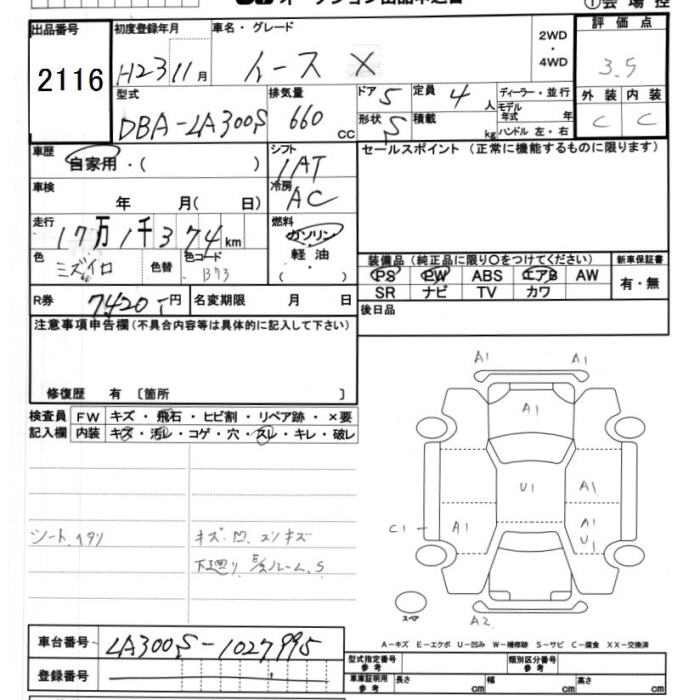 ①会場控
出品番号 初度登録年月 車名・グレード 2WD ・ 4WD 評価点
2116 H23 11月 X 3.5
型式 排気量 ドア 5 定員 4人 ディーラー・並行 外装 内装
DBA-LA300S 660 cc 形状 S 積載 kg モデル年式 年 C C
ハンドル 左・右
車歴 シフト セールスポイント(正常に機能するものに限ります)
自家用・( ) IAT
車検 冷房
年 月( 日) AC
走行 燃料
17万1千374km ガソリン
色 色替 色コード 軽油 装備品(純正品に限り〇をつけてください) 新車保証書
ミズイロ B73 ・( ) PS PW ABS エアB AW 有・無
R券 7420-円 名変期限 月 日 SR ナビ TV カワ
後日品
注意事項申告欄(不具合内容等は具体的に記入して下さい)
修復歴 有 〔箇所 〕
検査員 FW キズ・飛石・ヒビ割・リペア跡・×要
記入欄 内装 キズ・汚レ・コゲ・穴・スレ・キレ・破レ
A1 A1
A1
U1 A1
C1 A1 A1
U1
シート ヘタリ キズ・凹 スリキズ
下廻リ ルーム S
スペア A2
A-キズ E-エクボ U-凹み W-補修跡 S-サビ C-腐食 XX-交換済
車台番号 LA300S-1027995
型式指定番号 参考 類別区分番号 参考
登録番号 車庫証明用 参考 長さ cm 幅 cm 高さ cm